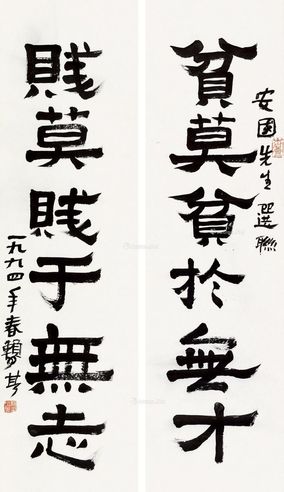 安国先生選聯
貧莫貧於無才
賤莫賤于無志
一九九四年春賴少其